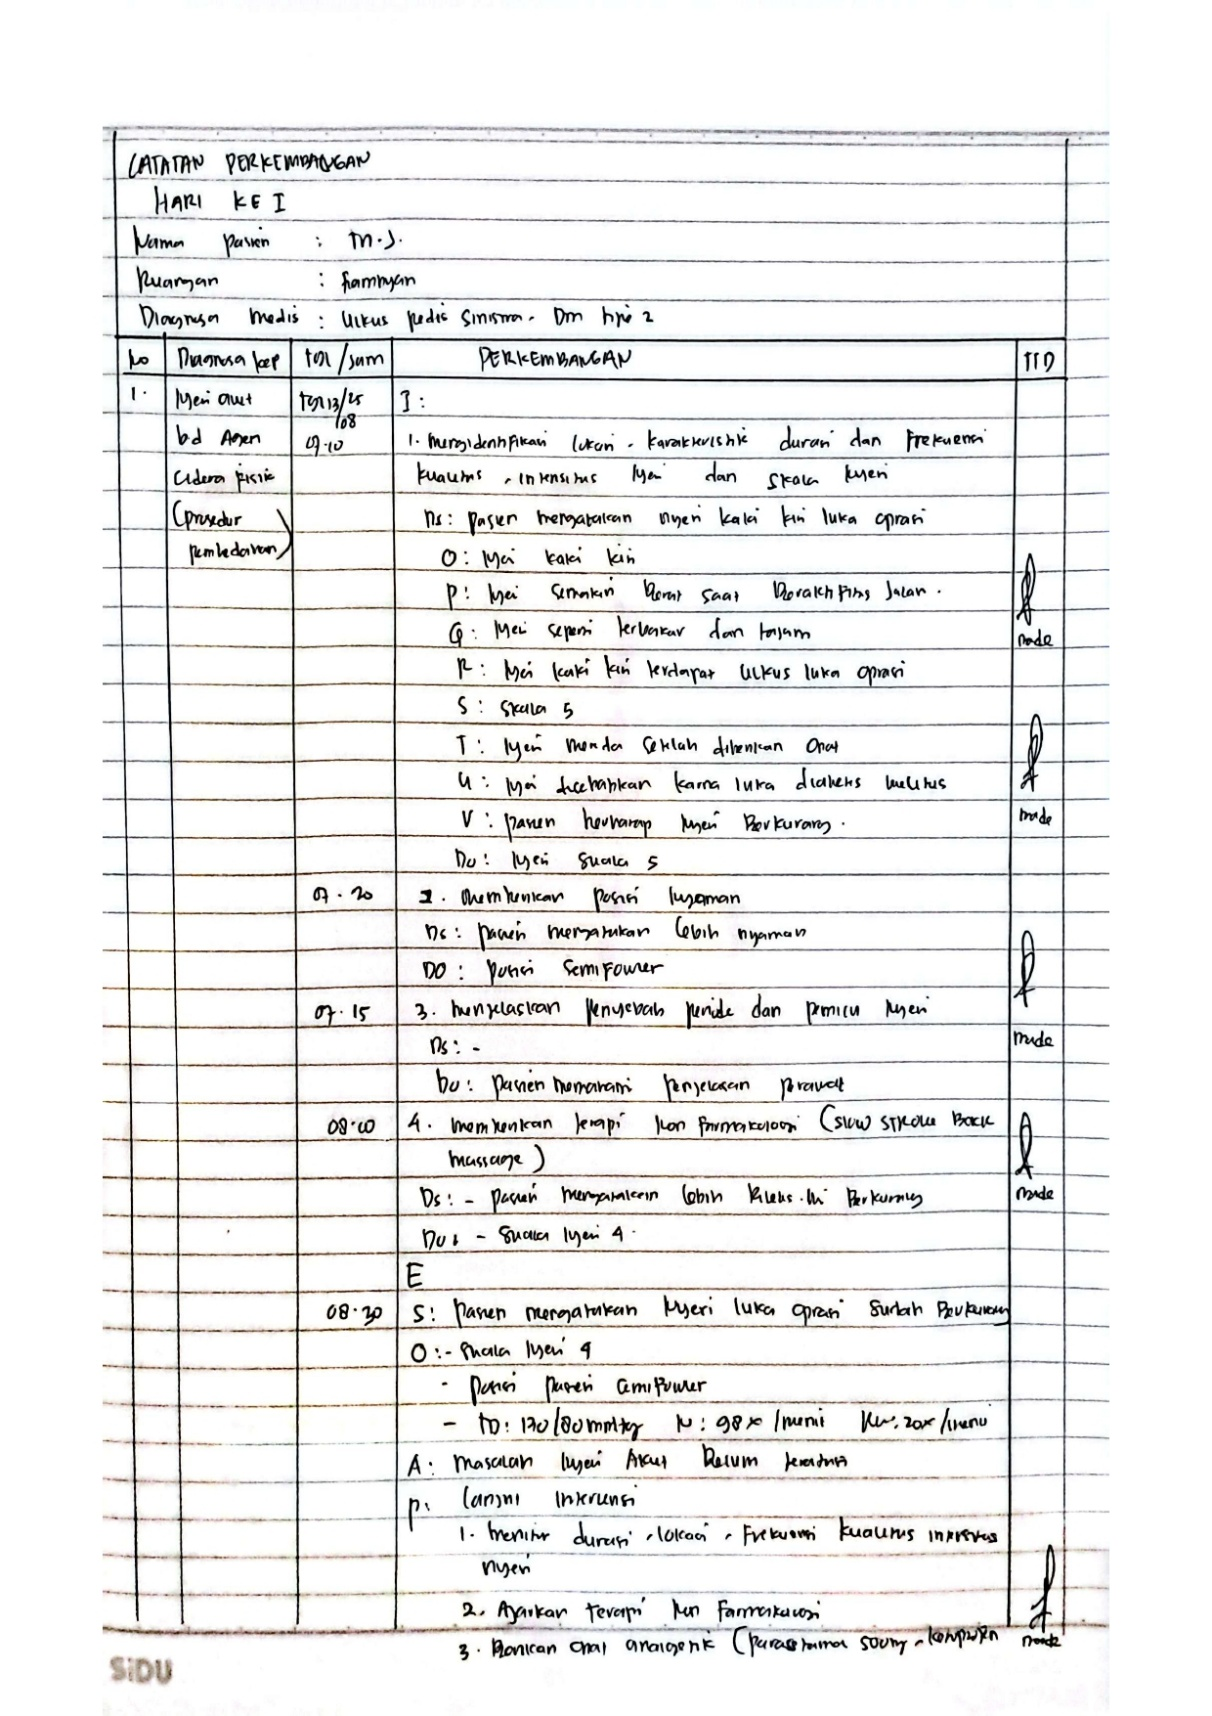 CATATAN PERKEMBANGAN
HARI KE I
Nama pasien : Tn.S.
Ruangan :
Diagnosa medis : Ulkus pedis Sinistra. Dm tipe 2
No Diagnosa kep tgl/jam PERKEMBANGAN TTD
1. Nyeri akut tgl 13/25 I:
/08
bd Agen 07.10 1. mengidentifikasi lokasi, karakteristik durasi dan Frekuensi
cidera fisik kualitas, intensitas Nyeri dan skala Nyeri
(prosedur Ds: pasien mengatakan nyeri kaki kiri luka oprasi
pembedahan) O: Nyeri kaki kiri
P: Nyeri Semakin Berat saat Beraktifitas Jalan.
Q: Nyeri seperti terbakar dan tajam
made
R: Nyeri kaki kiri terdapat ulkus luka oprasi
S: skala 5
T: Nyeri mereda setelah diberikan Obat
U: Nyeri disebabkan karna luka diabetes melitus
V: pasien berharap Nyeri Berkurang.
made
Do: Nyeri Skala 5
07.20 2. memberikan posisi nyaman
Ds: pasien mengatakan lebih nyaman
DO: posisi semifowler
07.15 3. menjelaskan penyebab periode dan pemicu Nyeri
Ds: - made
Do: pasien memahami penjelasan perawat
08.00 4. memberikan terapi Non farmakologi (slow stroke Back
massage)
Ds: - pasien mengatakan lebih Berkurang made
Do: - Skala Nyeri 4.
E
08.30 S: pasien mengatakan Nyeri luka oprasi sudah Berkurang
O: - Skala Nyeri 4
- posisi pasien semifowler
- TD: 170/80 mmHg N: 98x/menit RR: 20x/menit
A: masalah Nyeri Akut Belum teratasi
P: lanjut intervensi
1. monitor durasi, lokasi, Frekuensi kualitas intensitas
nyeri
2. Ajarkan terapi Non Farmakologi
3. Berikan obat analgetik (paracetamol 500mg, made
SiDU